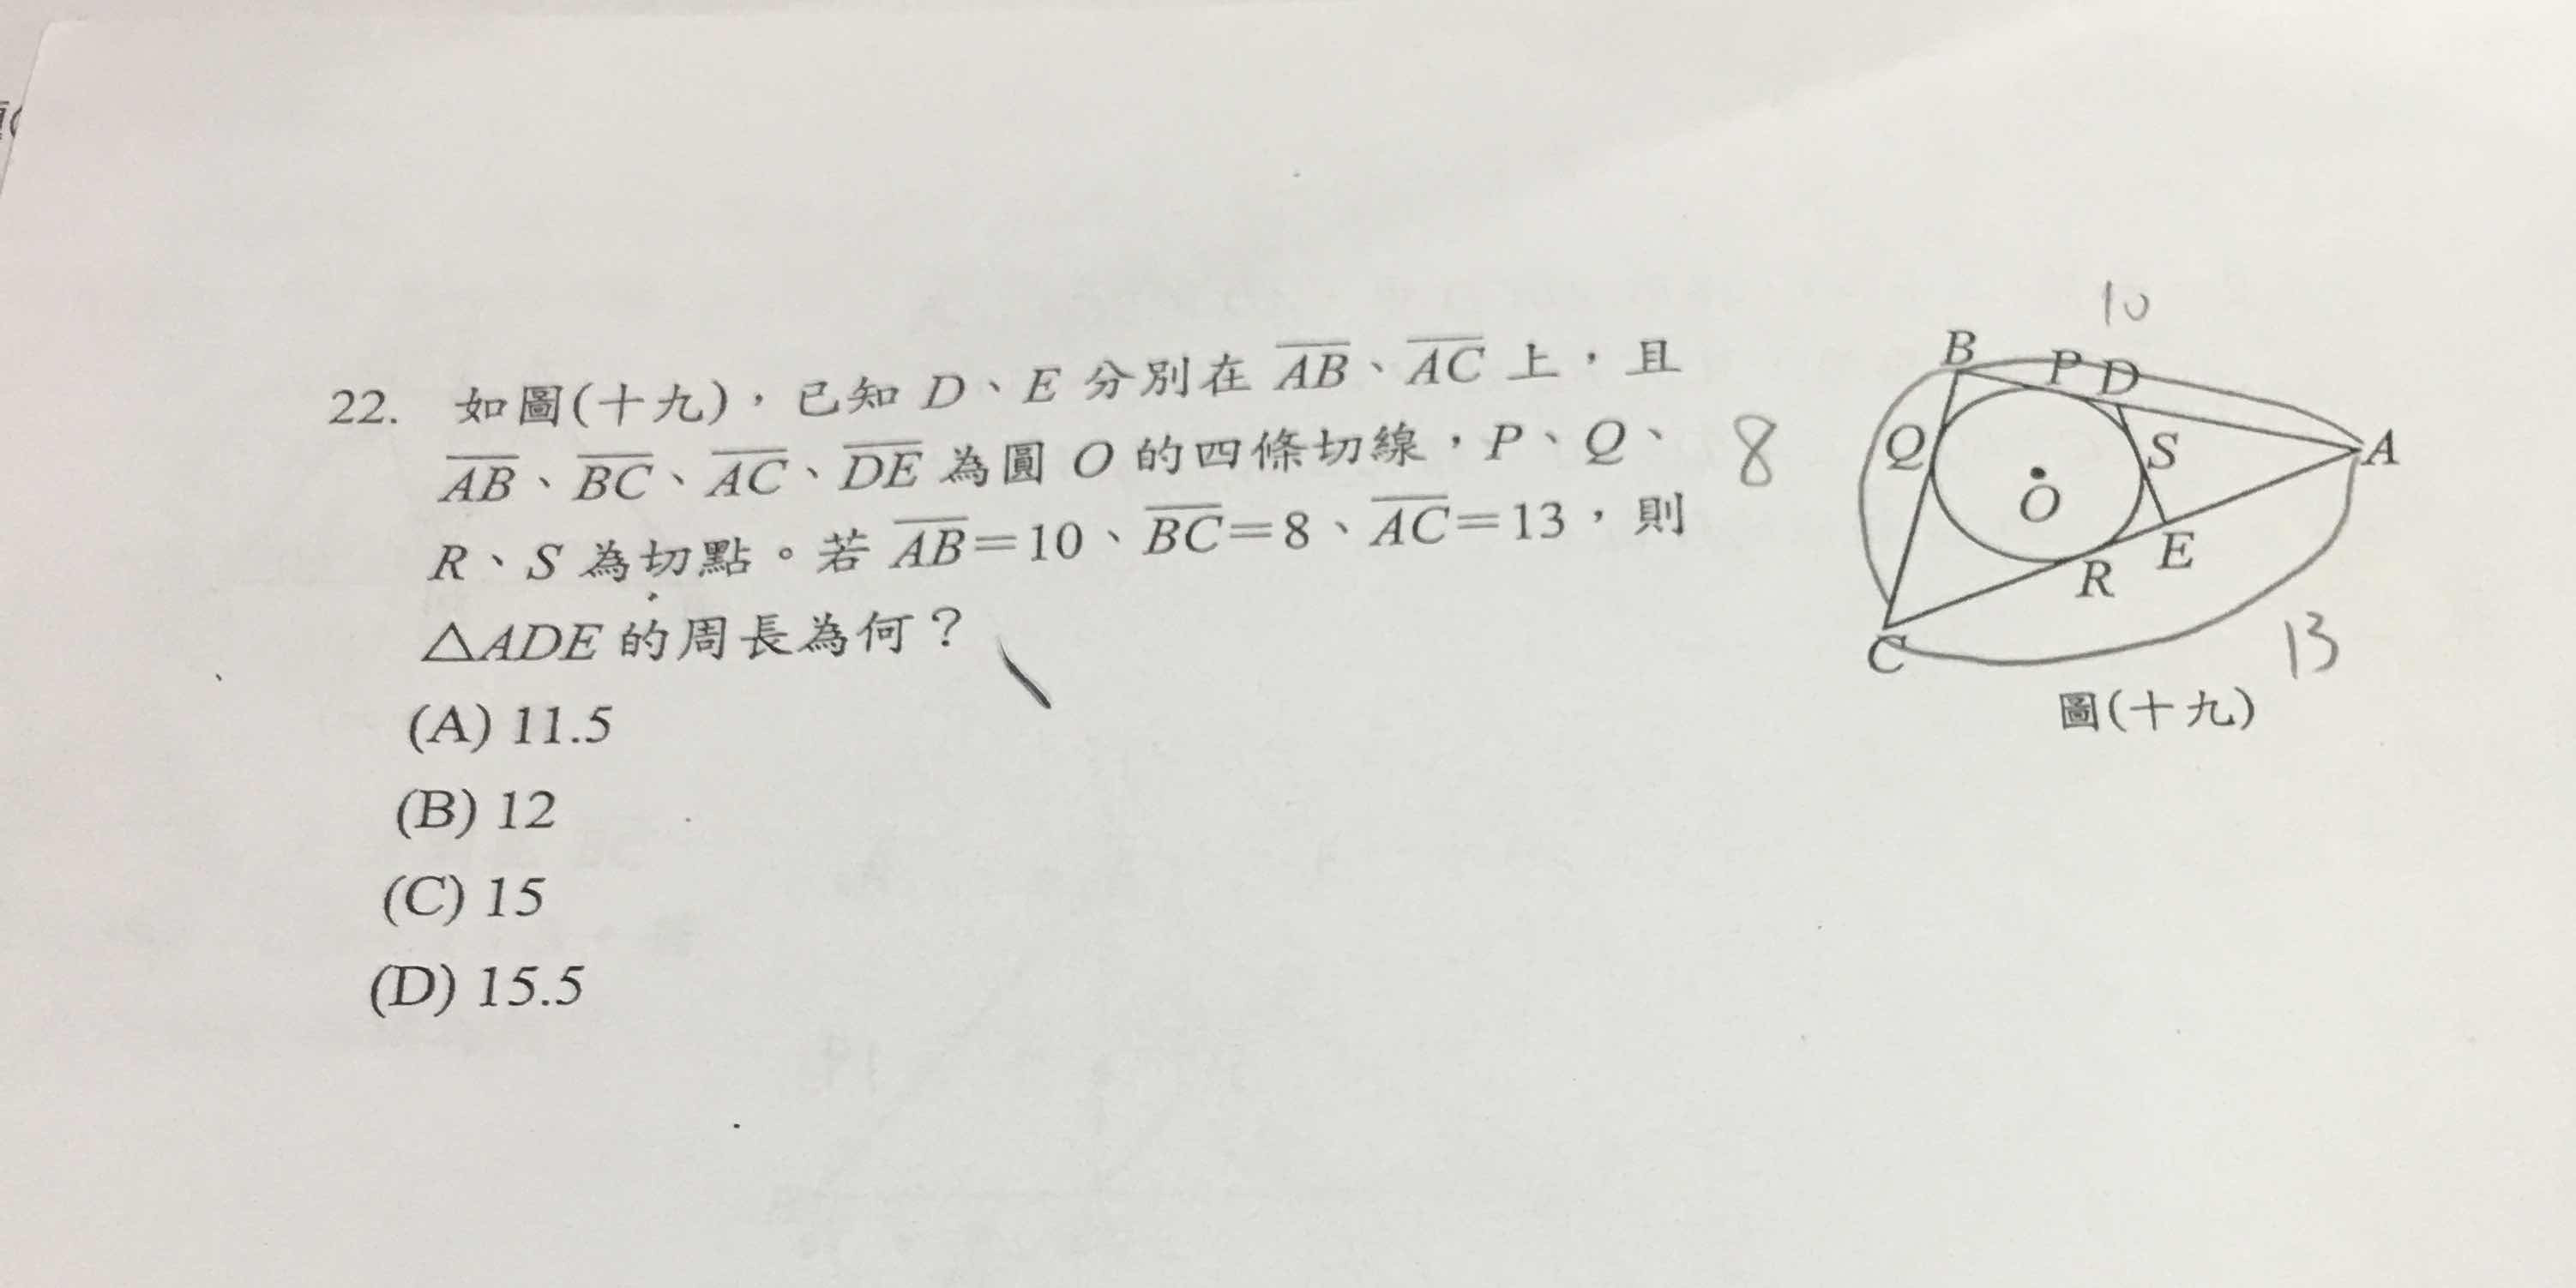 22. 如圖(十九),已知 D、E 分別在 AB、AC 上,且
AB、BC、AC、DE 為圓 O 的四條切線,P、Q、
R、S 為切點。若 AB=10、BC=8、AC=13,則
△ADE 的周長為何?
(A) 11.5
(B) 12
(C) 15
(D) 15.5
10
B P D
8
Q S A
O
E
R
C
13
圖(十九)